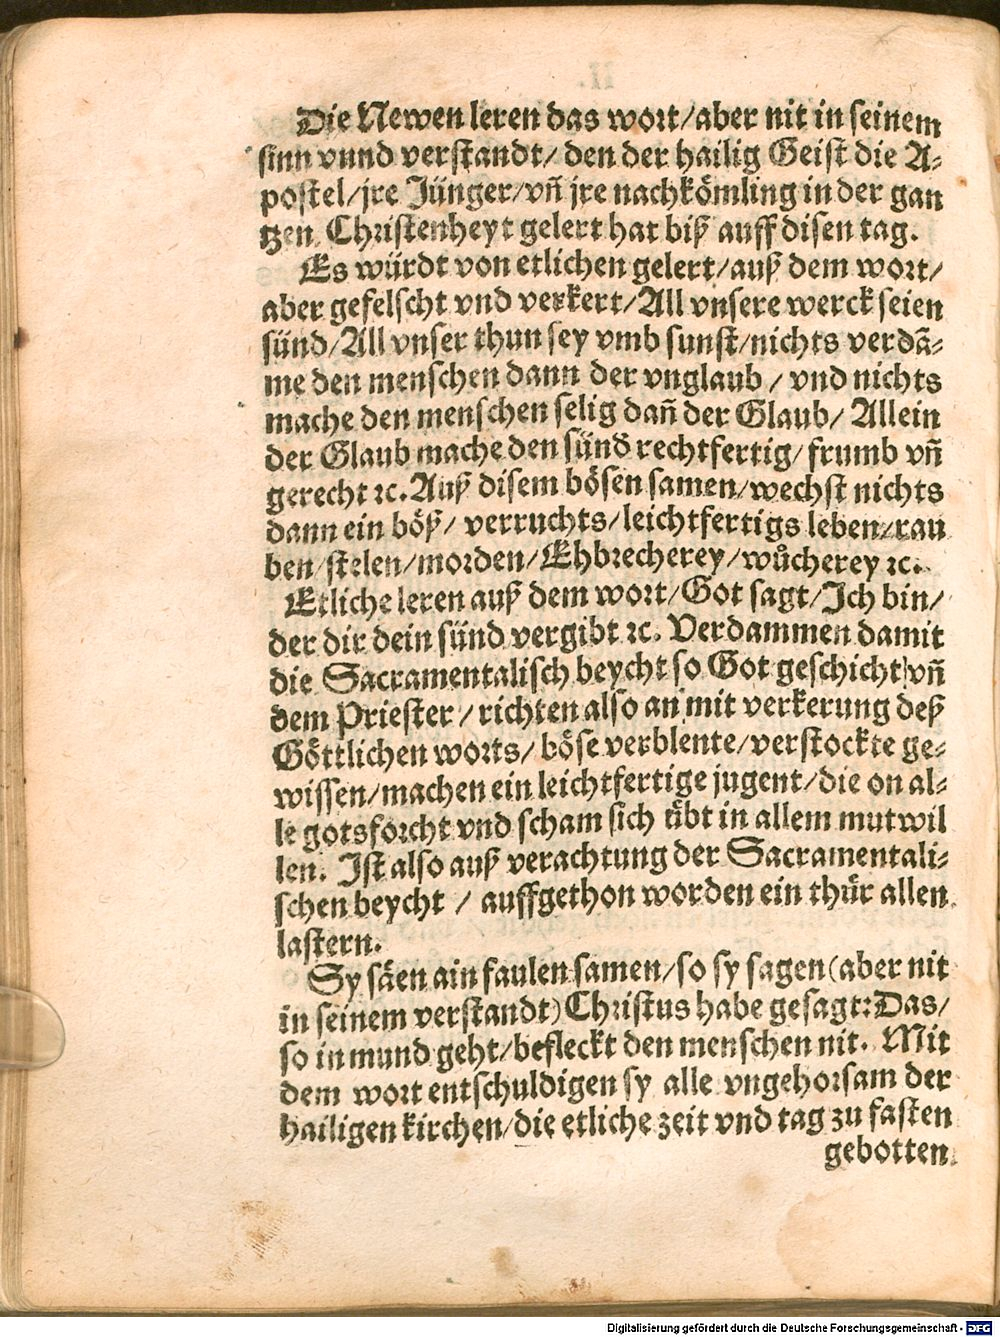 Die Newen leren das wort/aber nit in seinem
sinn vnnd verstandt/ den der hailig Geist die A-
postel/jre Jünger/vñ jre nachkömling in der gan
tzen Christenheyt gelert hat biß auff disen tag.
Es würdt von etlichen gelert/auß dem wort/
aber gefelscht vnd verkert/All vnsere werck seien
sünd/All vnser thun sey vmb sunst/nichts verdã-
me den menschen dann der vnglaub / vnd nichts
mache den menschen selig dañ der Glaub/ Allein
der Glaub mache den sünd rechtfertig/ frumb vñ
gerecht ꝛc. Auß disem bösen samen/wechst nichts
dann ein böß/ verruchts/leichtfertigs leben/rau
ben/stelen/morden/Ehbrecherey/wůcherey ꝛc.
Etliche leren auß dem wort/Got sagt/Ich bin/
der dir dein sünd vergibt ꝛc. Verdammen damit
die Sacramentalisch beycht so Got geschicht/vñ
dem Priester / richten also an mit verkerung deß
Göttlichen worts/ böse verblente/verstockte ge-
wissen/machen ein leichtfertige jugent/die on al-
le gotsforcht vnd scham sich übt in allem mutwil
len. Ist also auß verachtung der Sacramentali-
schen beycht / auffgethon worden ein thür allen
lastern.
Sy säen ain faulen samen/so sy sagen(aber nit
in seinem verstandt)Christus habe gesagt:Das/
so in mund geht/befleckt den menschen nit. Mit
dem wort entschuldigen sy alle vngehorsam der
hailigen kirchen/die etliche zeit vnd tag zu fasten
gebotten
Digitalisierung gefördert durch die Deutsche Forschungsgemeinschaft - DFG